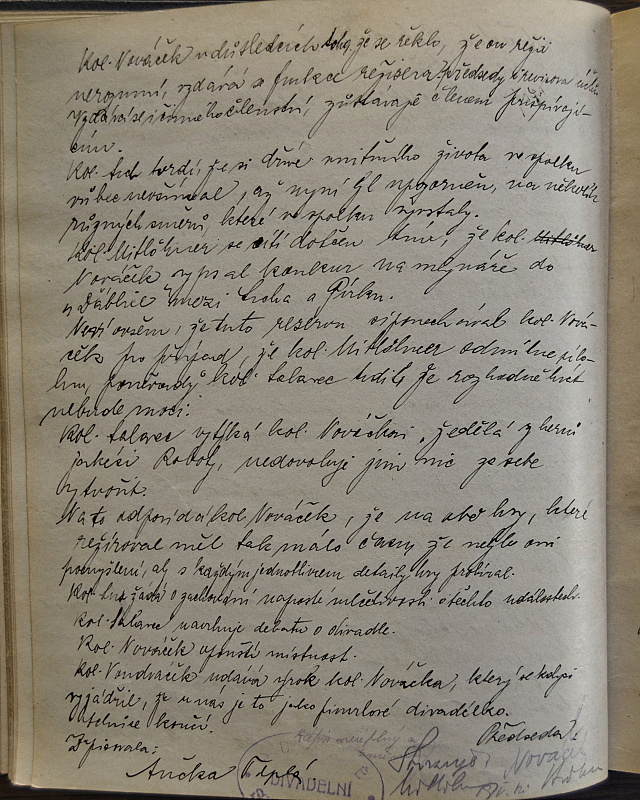 Kol. Nováček v důsledcích toho, že se řeklo, že on režii
nerozumí, vzdává se funkce režisera předsedy a revisora účtů
vzdává se i činného členství, zůstávaje členem přispívají-
cím.
Kol. tvrdí, že si dříve vnitřního života ve spolku
vůbec nevšímal, až nyní byl upozorněn, na několik
různých směrů, které ve spolku vyrostly.
Kol. Mitlöhner se cítí dotčen tím, že kol. Mitlöhner
Nováček vypsal konkur na mlynáře do
z Ďáblice mezi a
Není ovšem, že tuto reservu si ponechával kol. Nová-
ček pro případ, že kol. Mitlöhner odmítne úlo-
hu, poněvadž kol. Salavec tvrdil, že rozhodně hrát
nebude moci.
Kol. Salavec vytýká kol. Nováčkovi, že dělá z herců
jakési Roboty, nedovoluje jim nic ze sebe
vytvořit.
Na to odpovídá kol. Nováček, že na obě hry, které
režíroval měl tak málo času že nebylo ani
pomyšlení, aby s každým jednotlivcem detaily hry probíral.
Kol. žádá o zachování naprosté mlčelivosti o těchto událostech.
Kol. Salavec navrhuje debatu o divadle.
Kol. Nováček opouští místnost.
Kol. Vondráček udává výrok kol. Nováčka, který se kdysi
vyjádřil, že u nás je to jako fimrlové divadélko.
schůze končí.
Zapisovala: Předseda:
Ančka Nováček
DIVADELNÍ